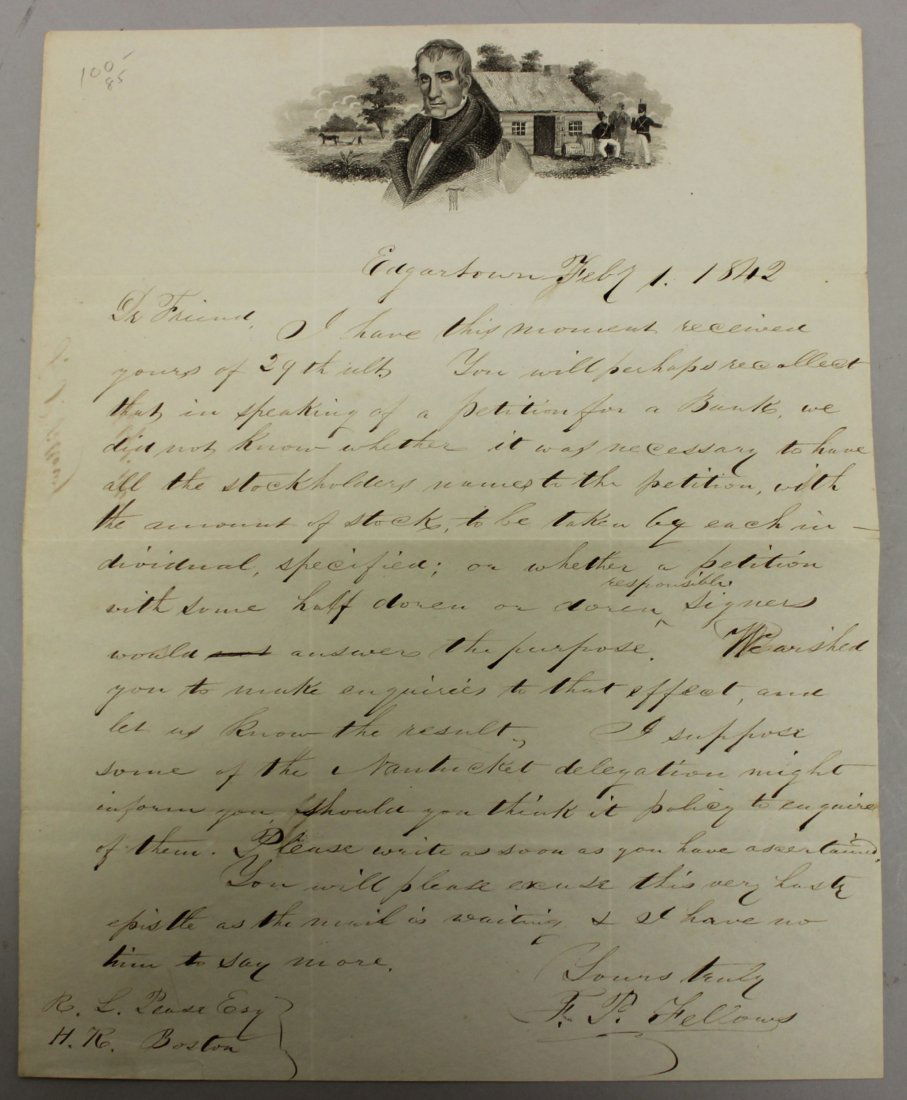 100
85
Edgartown Feby 1. 1842
Dr Friend,
I have this moment received
yours of 29th ult. You will perhaps recollect
that, in speaking of a petition for a Bank, we
did not know whether it was necessary to have
all the stockholders names to the petition, with
the amount of stock, to be taken by each in-
dividual, specified; or whether a petition
with some half dozen or dozen responsible signers
would answer the purpose. We wished
you to make enquiries to that effect, and
let us know the result. I suppose
some of the Nantucket delegation might
inform you, should you think it policy to enquire
of them. Please write as soon as you have ascertaind.
You will please excuse this very hasty
epistle as the mail is waiting & I have no
tim to say more.
Yours truly
F. P. Fellows
R. L. Pease Esq
H. R. Boston